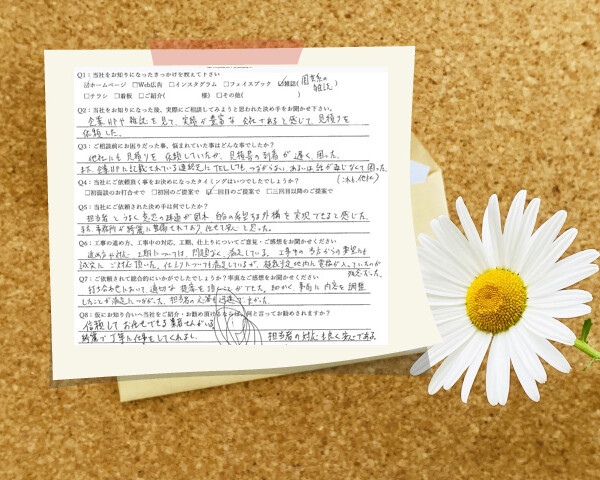 Q1：当社をお知りになったきっかけを教えて下さい
☑ホームページ □Web広告 □インスタグラム □フェイスブック ☑雑誌(
雑誌 )
□チラシ □看板 □ご紹介( 様) □その他( )
Q2：当社をお知りになった後、実際にご相談してみようと思われた決め手をお聞かせ下さい。
企業HPや雑誌を見て、実績が豊富な会社であると感じて、見積りを
依頼した。
Q3：ご相談前にお困りだった事、悩まれていた事はどんな事でしたか？
他社にも見積りを依頼していたが、見積書の到着が遅く、困った。
また、企業HPに記載されている連絡先にTELしても、つながらない、あるいは 感じなくて困った
(これも他社)
Q4：当社にご依頼頂く事をお決めになったタイミングはいつでしたでしょうか？
□初回面談のお打合せで □初回のご提案で ☑二回目のご提案で □三回目以降のご提案で
Q5：当社にご依頼された決め手は何でしたか？
担当者とうまく意思の疎通が図れ、自分の希望する外構を実現できると感じた。
また、事務所が綺麗に整備されており、任せて良いと思った。
Q6：工事の進め方、工事中の対応、工期、仕上りについてご意見・ご感想をお聞かせください
進め方や対応、工期については問題なく、満足している。工事中の
ご対応頂いた。仕上りについても満足しているが、
残念だった。
Q7：ご依頼されて総合的にいかがでしたでしょうか？率直なご感想をお聞かせください
打ち合わせにおいて、適切な提案を頂くことができた。細かく、事前に内容を調整
したことが満足につながった。担当者の 良かった。
Q8：仮にお知り合いへ当社をご紹介・お勧め頂けるならば、何と言ってお勧めされますか？
信頼してお任せできる業者さんがいる
綺麗で丁寧に仕事をしてくれるし、 担当者の対応も良く